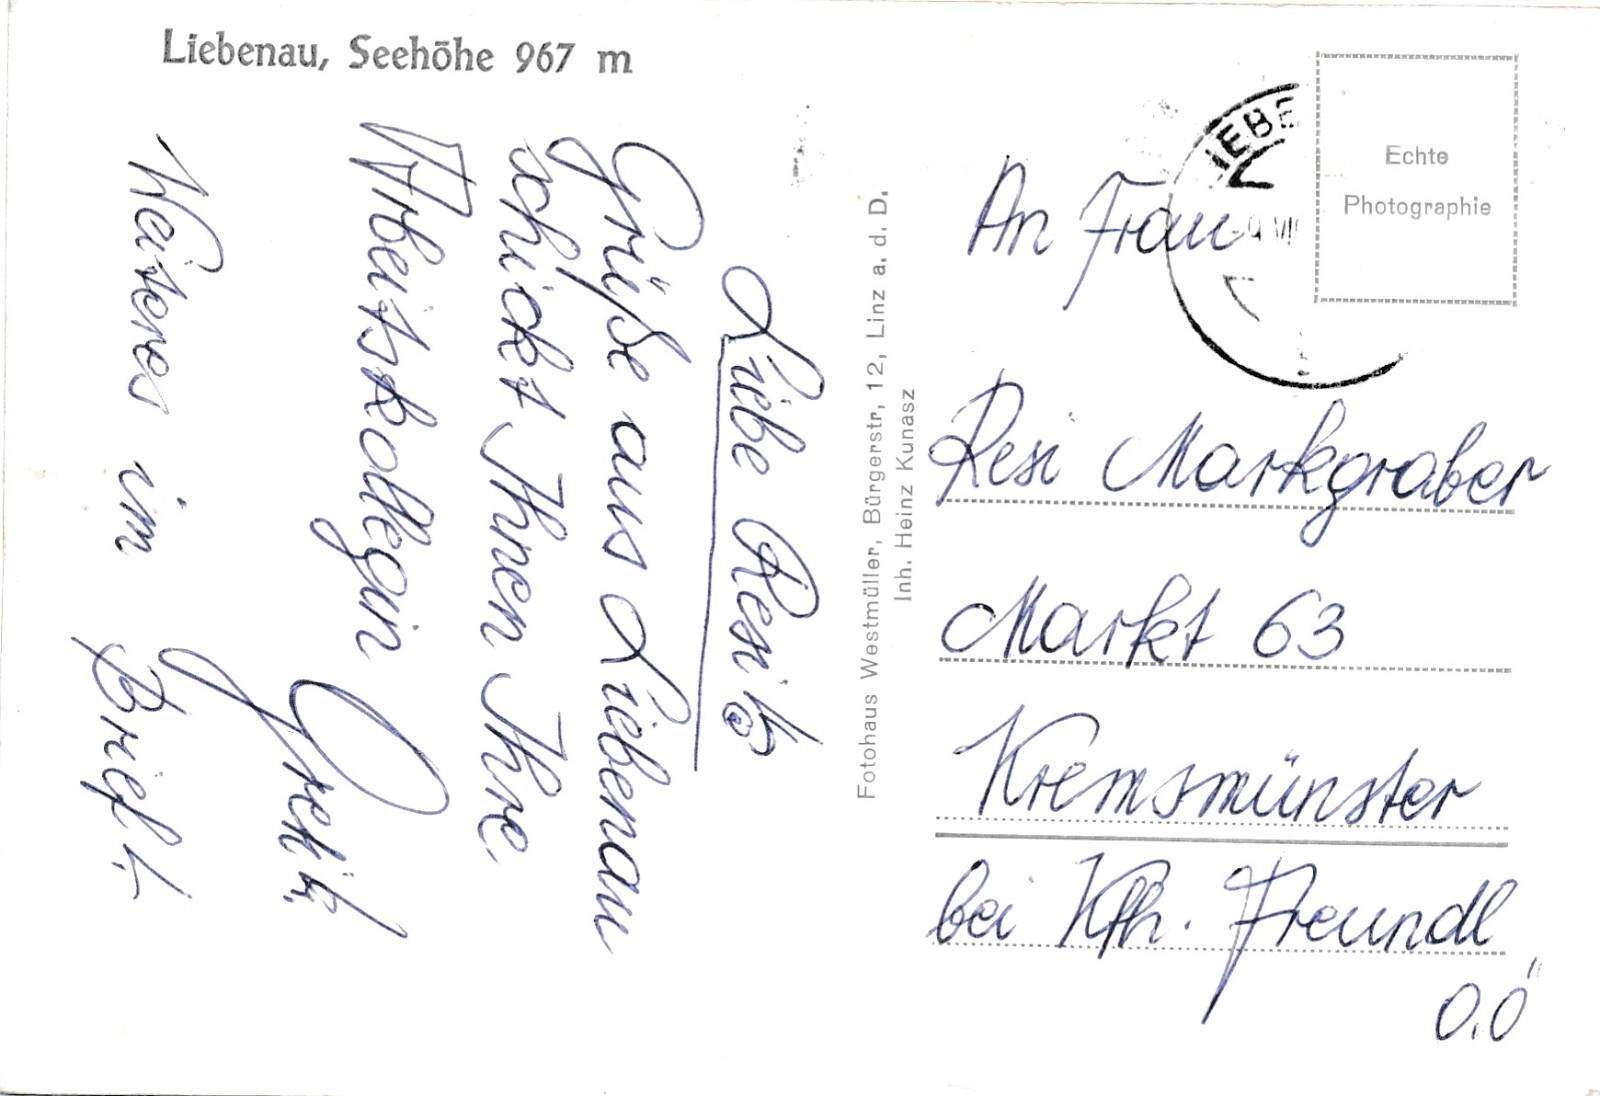 Liebenau, Seehöhe 967 m
Liebe Resi!
Grüße aus Liebenau
schickt Ihnen Ihre
Arbeitskollegin
Gretl!
Weiteres im Brief!
Fotohaus Westmüller, Bürgerstr, 12, Linz a. d. D.
Inh. Heinz Kunasz
IEBE
Echte
Photographie
An Frau
Resi Markgraber
Markt 63
Kremsmünster
bei Kfh. Freundl
O.Ö